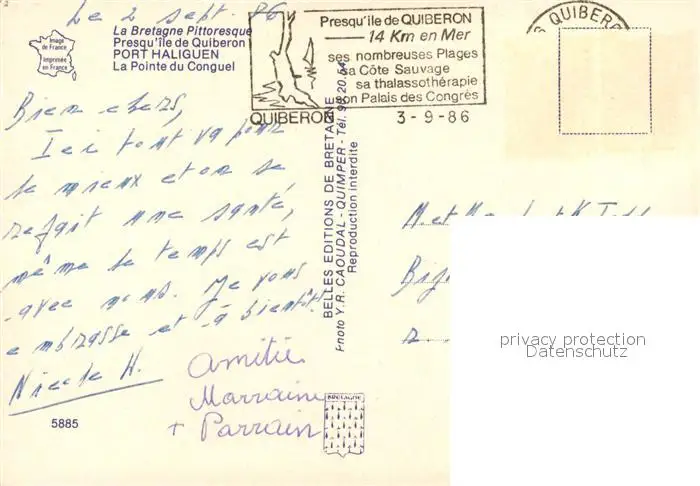 Le 2 sept. 86
La Bretagne Pittoresque
Presqu'île de Quiberon
PORT HALIGUEN
La Pointe du Conguel
Image de France
Imprimée en France
Presqu'ile de QUIBERON
14 Km en Mer
ses nombreuses Plages
sa Côte Sauvage
sa thalassothérapie
son Palais des Congrès
QUIBERON
3-9-86
QUIBERON
Bien chers,
Ici tout va pour
le mieux et on se
refait une santé,
même le temps est
avec nous. Je vous
embrasse et à bientôt.
Nicole H.
Amitié
Marraine
+ Parrain
5885
BELLES EDITIONS DE BRETAGNE
Photo Y.R. CAOUDAL - QUIMPER - Tél.
Reproduction interdite
BRETAGNE
M. et
privacy protection
Datenschutz